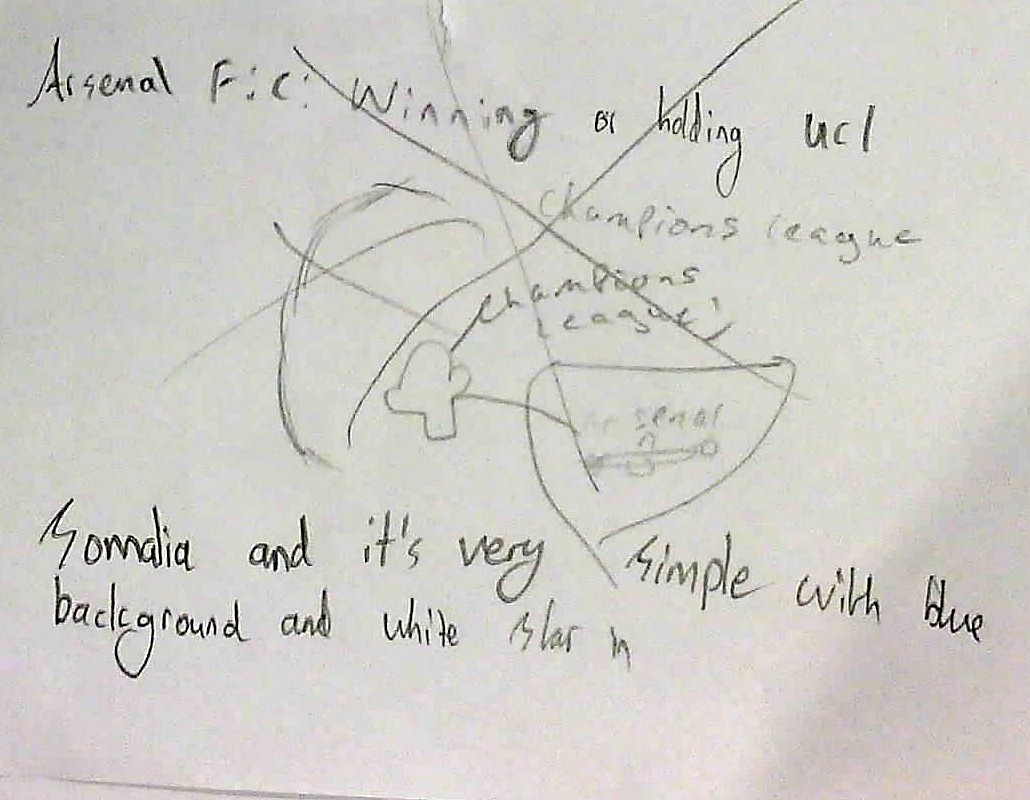 Arsenal F.C. Winning or holding ucl
Champions league
Champions
league
Arsenal
Somalia and it's very simple with blue
background and white star in